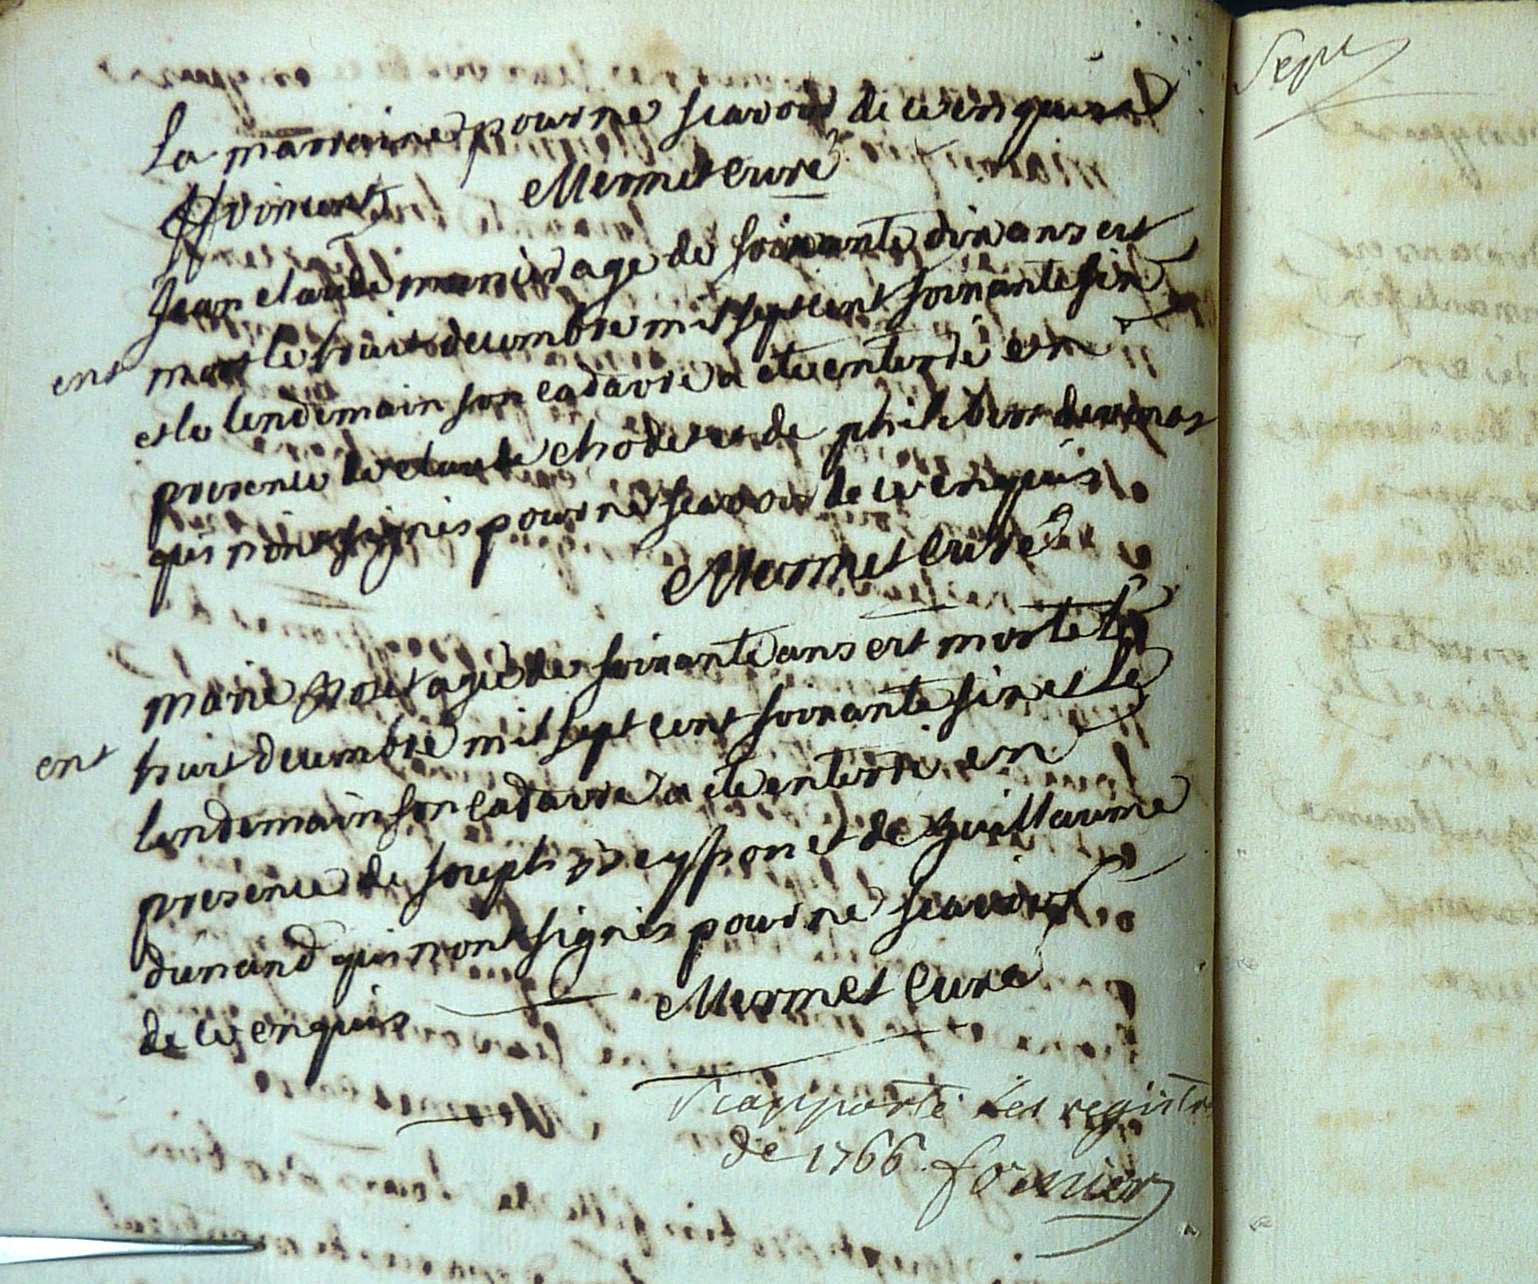 Sept
la marraine pour ne scavoir de ce enquise
Mermet curé
Jean claude agé de soixante dix ans est
ent mort le huit decembre mil sept cent soixante six
et le lendemain son cadavre a eté enterré en
presence de claude chodet et de philibert
qui n'ont signés pour ne scavoir de ce enquis
Mermet curé
marie agée de soixante ans est morte le
ent huit decembre mil sept cent soixante six et le
lendemain son cadavre a eté enterré en
presence de joseph et de guillaume
dunand qui n'ont signés pour ne scavoir
de ce enquis Mermet curé
rapporté les registre
de 1766.
Sept